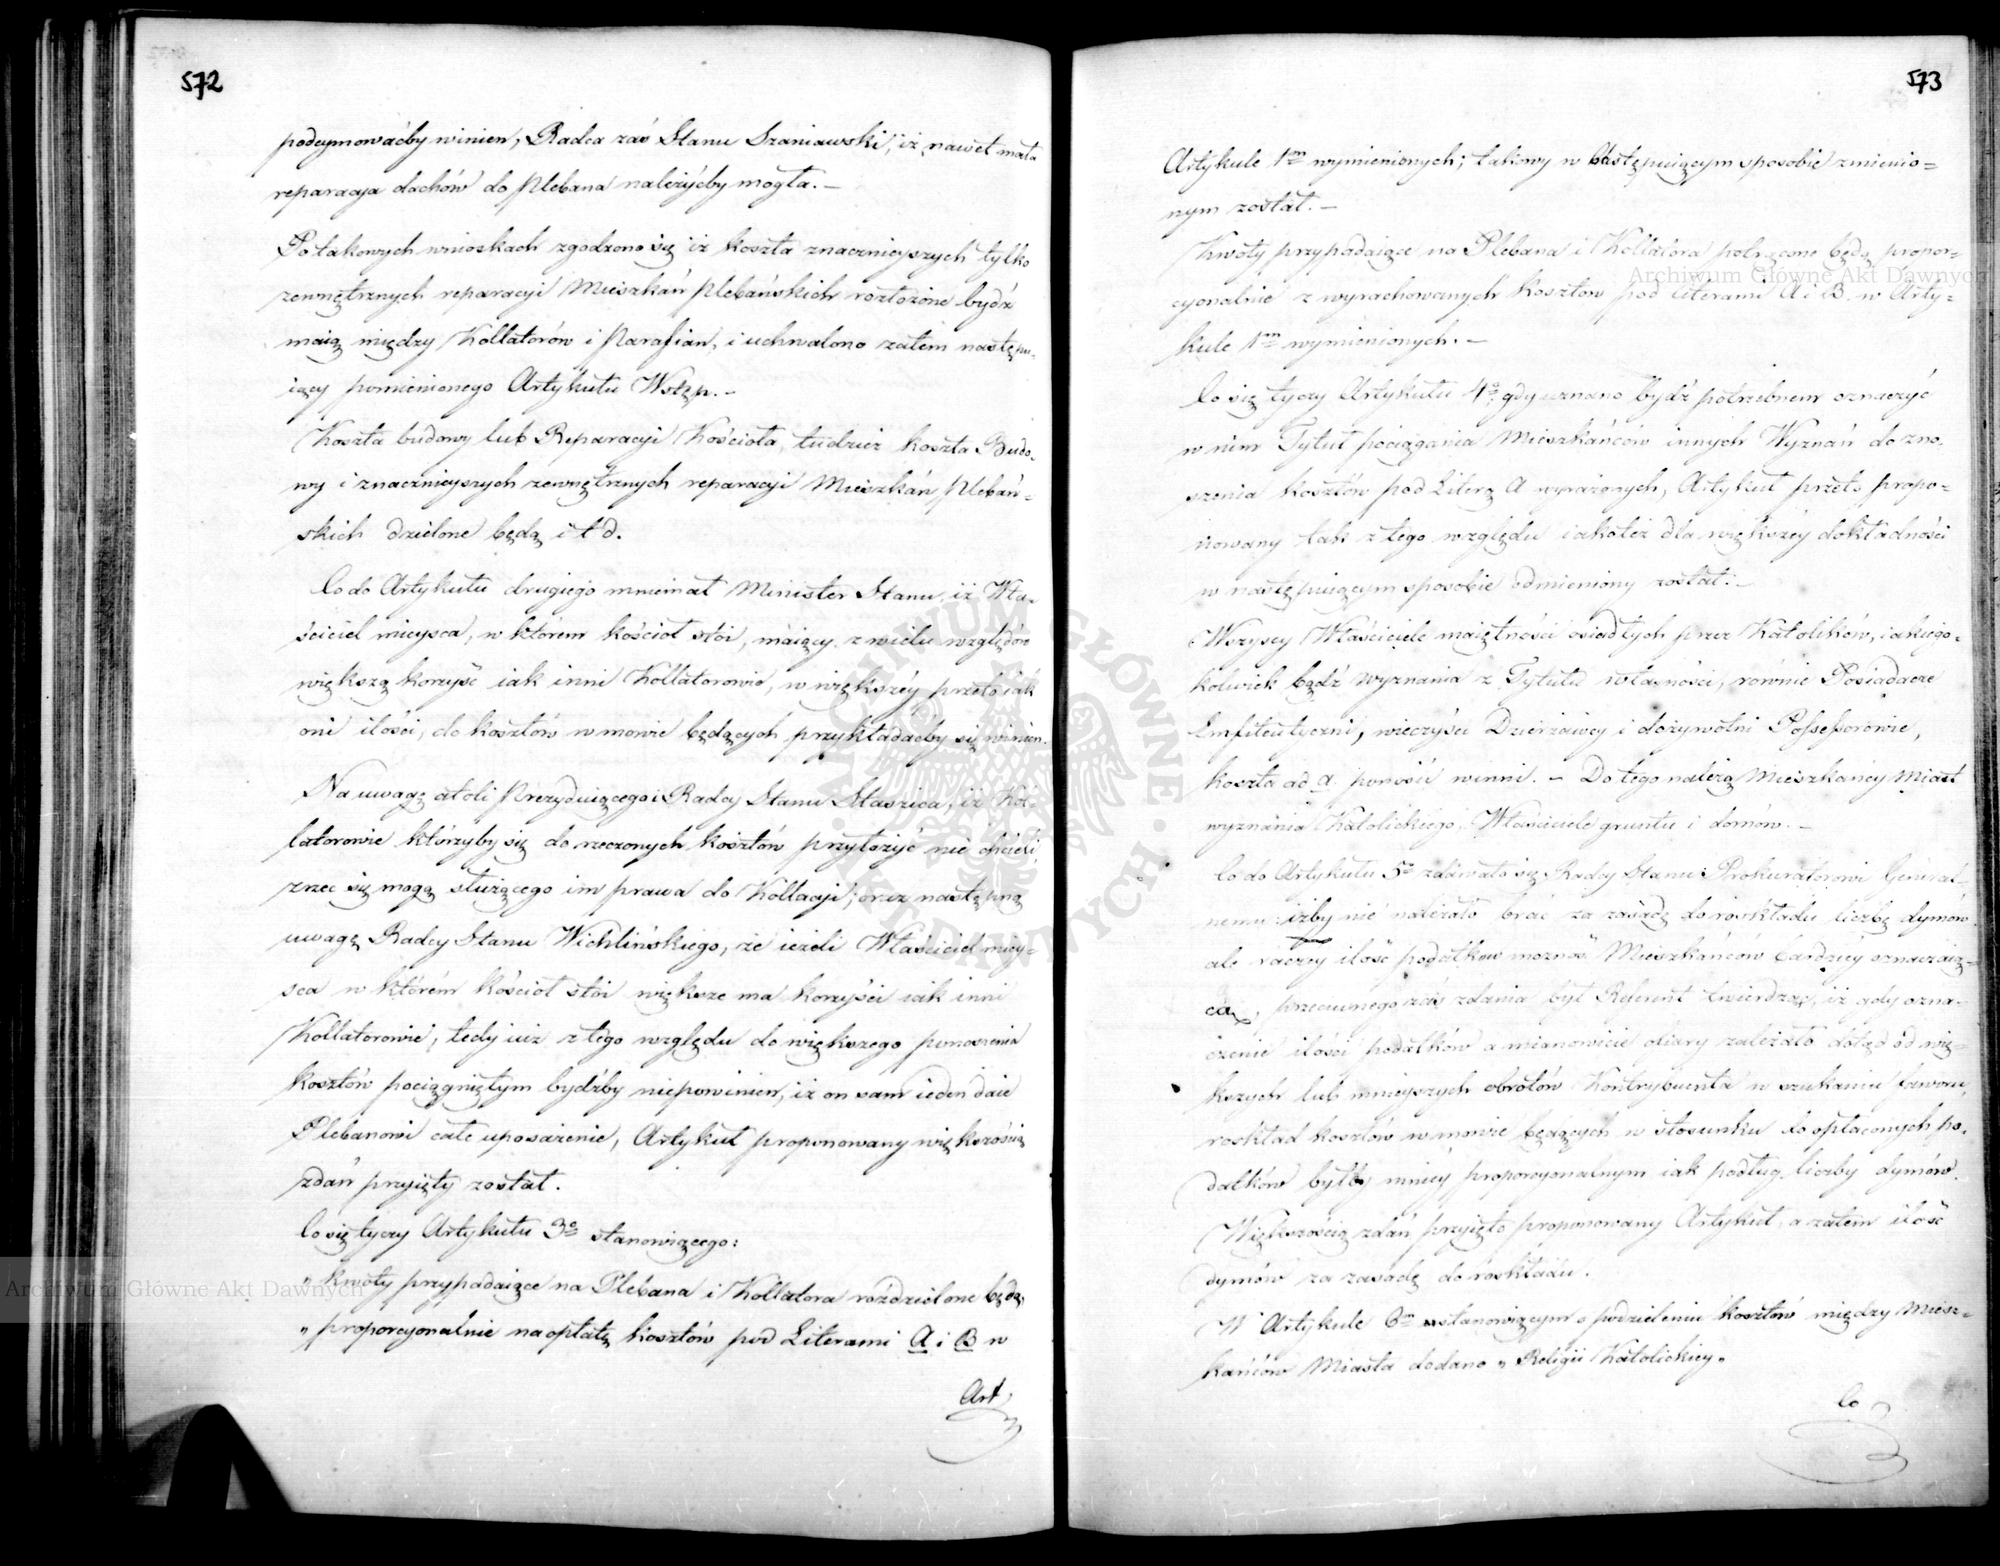 572
podeymowaćby winien; Radca zaś Stanu Szaniawski, iż nawet mała
reparacya dachów do Plebana należyćby mogła. –
Po takowych wnioskach zgodzono się iż koszta znacznieyszych tylko
zewnętrznych reparacyi Mieszkań Plebańskich rozłożone bydź
maią między Kollatorów i Parafian, i uchwalono zatem następu-
iący pomienionego Artykułu Wstęp. –
Koszta budowy lub Reparacyi Kościoła, tudzież koszta Budo-
wy i znacznieyszych zewnętrznych reparacyi Mieszkań Plebań-
skich dzielone będą i t d.
Co do Artykułu drugiego mniemał Minister Stanu, iż Wła-
ściciel mieysca, w którem kościoł stoi, maiący z wielu względów
większą korzyść iak inni Kollatorowie, w większéy przeto iak
oni ilości, do kosztów w mowie będących przykładaćby się winien.
Na uwagę atoli Prezyduiącego i Radcy Stanu Staszica, iż Kol-
latorowie którzyby się do rzeczonych kosztów przyłożyć nie chcieli
zrzec się mogą służącego im prawa do Kollacyi; oraz następną
uwagę Radcy Stanu Wichlińskiego, że ieżeli Właściciel miey-
sca w którém kościoł stoi większe ma korzyści iak inni
Kollatorowie, tedy iuż z tego względu do większego ponoszenia
kosztów pociągniętym bydźby niepowinien, iż on sam ieden daie
Plebanowi całe uposażenie, Artykuł proponowany większością
zdań przyięty został.
Co się tyczy Artykułu 3o stanowiącego:
„ kwoty przypadaiące na Plebana i Kollatora rozdzielone będą,
„ proporcyonalnie na opłatę kosztów pod Literami A i B w
Art
573
Artykule 1m wymienionych; takowy w następuiącym sposobie zmienio=
nym został. –
Kwoty przypadaiące na Plebana i Kollatora potrącone będą propor-
cyonalnie z wyrachowanych kosztów pod literami A i B. w Arty-
kule 1m wymienionych. –
Co się tyczy Artykułu 4o, gdy uznano bydź potrzebnem oznaczyć
w nim Tytuł pociągania Mieszkańców innych Wyznań do zno-
szenia kosztów pod Literą A wyrażonych, Artykuł przeto propo-
nowany tak z tego względu iakoteż dla większéy dokładności
w następuiącym sposobie odmieniony został: –
Wszyscy Właściciele maiętności osiadłych przez Katolików, iakiego-
kolwiek bądź wyznania z Tytułu własności, równie Posiadacze
Emfiteutyczni, wieczyści Dzierżawcy i dożywotni Possessorowie,
koszta ad a. ponosić winni. – Do tego należą Mieszkańcy Miast
wyznania Katolickiego, Właściciele gruntu i domów. –
Co do Artykułu 5o zdawało się Radcy Stanu Prokuratorowi General-
nemu iżby nie należało brać za zasadę do rozkładu liczbę dymów
ale raczey ilość podatków możność Mieszkańców bardziey oznaczaią-
cą, przeciwnego zaś zdania był Referent twierdząc, iż gdy ozna-
czenie ilości podatków a mianowicie ofiary zależało dotąd od wię-
kszych lub mnieyszych obrotów Kontrybuenta w szukaniu faworu,
rozkład kosztów w mowie będących w stosunku do opłaconych po-
datków byłby mniey proporcyonalnym iak podług liczby dymów.
Większością zdań przyięto proponowany Artykuł, a zatem ilość
dymów za zasadę do rozkładu.
W Artykule 6m stanowiącym o podzieleniu kosztów między Miesz-
kańców Miasta dodano „ Religii Katolickiey „
Co
Archiwum Główne Akt Dawnych
Archiwum Główne Akt Dawnych
ARCHIWUM GŁÓWNE · AKT DAWNYCH ·